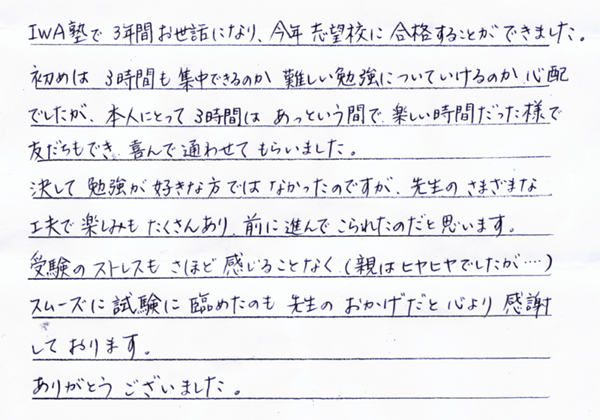 IWA塾で3年間お世話になり、今年志望校に合格することができました。
初めは3時間も集中できるのか難しい勉強についていけるのか心配
でしたが、本人にとって3時間はあっという間で、楽しい時間だった様で
友だちもでき、喜んで通わせてもらいました。
決して勉強が好きな方ではなかったのですが、先生のさまざまな
工夫で楽しみもたくさんあり、前に進んでこられたのだと思います。
受験のストレスもさほど感じることなく(親はヒヤヒヤでしたが…)
スムーズに試験に臨めたのも先生のおかげだと心より感謝
しております。
ありがとうございました。